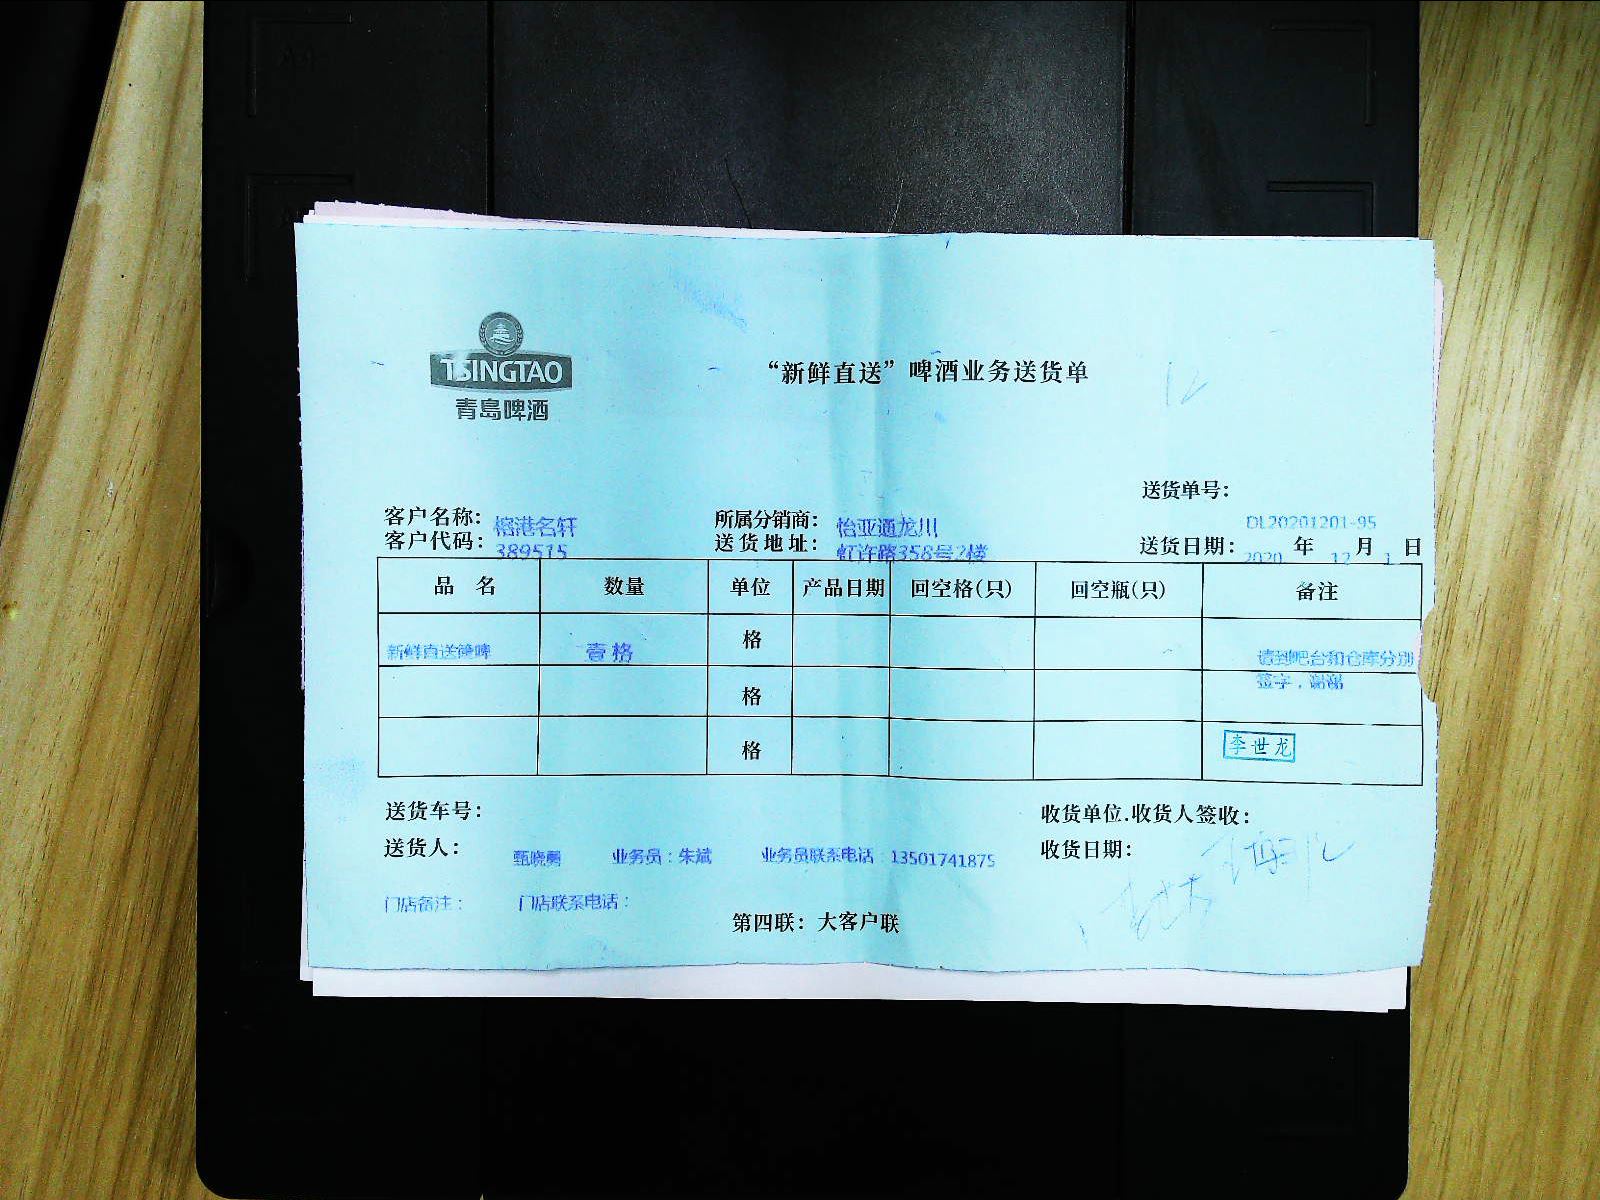 TSINGTAO
青岛啤酒
“新鲜直送”啤酒业务送货单
12
送货单号：
DL20201201-95
客户名称：榕港名轩 所属分销商：怡亚通龙川
客户代码：389515 送货地址：虹许路358号2楼 送货日期：2020 年 12 月 1 日
品 名 数量 单位 产品日期 回空格(只) 回空瓶(只) 备注
新鲜直送纯啤 壹格 格 请到吧台和仓库分别
签字，谢谢
格
格 李世龙
送货车号： 收货单位.收货人签收：
送货人：甄晓勇 业务员：朱斌 业务员联系电话：13501741875 收货日期：
门店备注： 门店联系电话：
第四联：大客户联